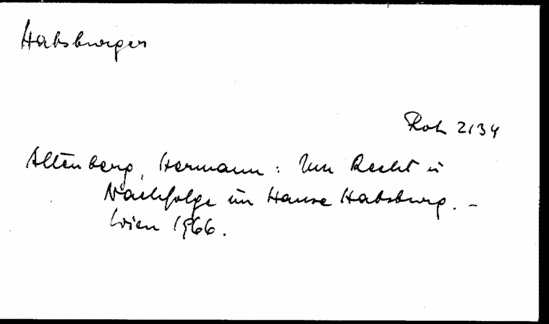 Habsburger
Rok 2134
Altenberg, Hermann: Um Recht u
Nachfolge im Hause Habsburg. –
Wien 1966.